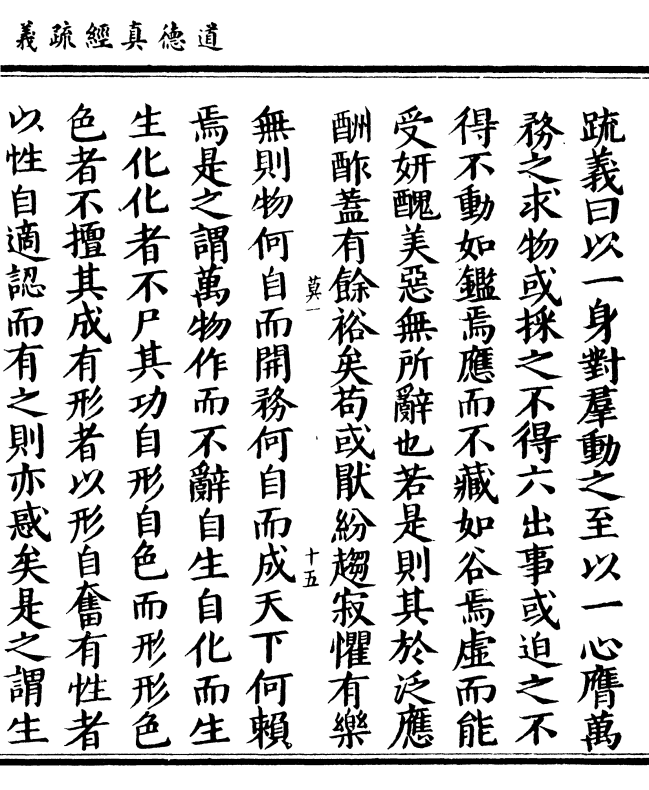 道德真經疏義
疏義曰以一身對羣動之至以一心膺萬
務之求物或採之不得六出事或迫之不
得不動如鑑焉應而不藏如谷焉虛而能
受妍醜美惡無所辭也若是則其於泛應
酬酢蓋有餘裕矣苟或猒紛趨寂懼有樂
莫一 十五
無則物何自而開務何自而成天下何賴
焉是之謂萬物作而不辭自生自化而生
生化化者不尸其功自形自色而形形色
色者不擅其成有形者以形自奮有性者
以性自適認而有之則亦惑矣是之謂生